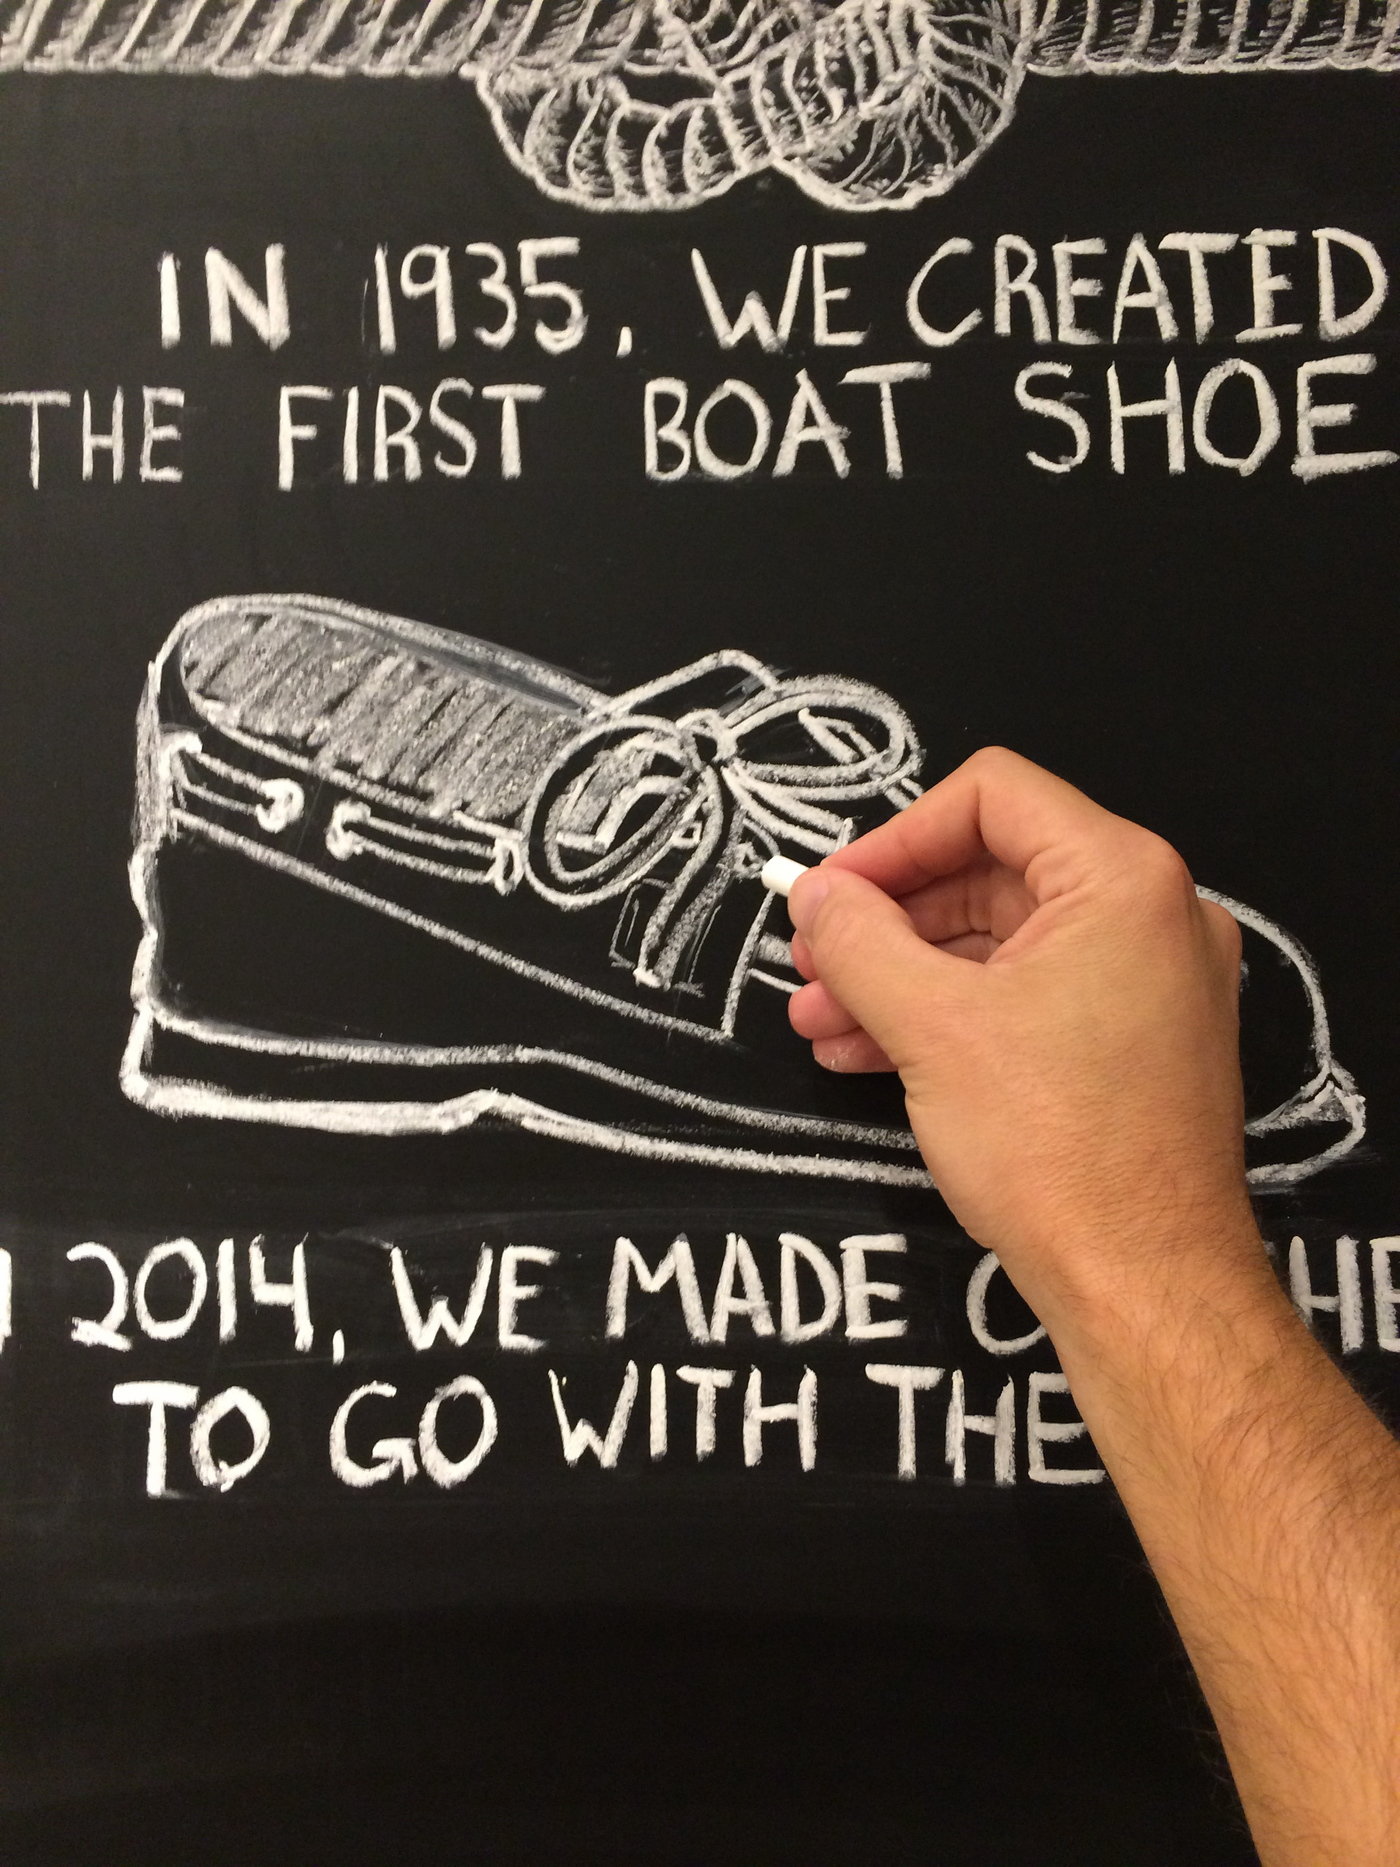 IN 1935, WE CREATED
THE FIRST BOAT SHOE
2014, WE MADE
TO GO WITH THE